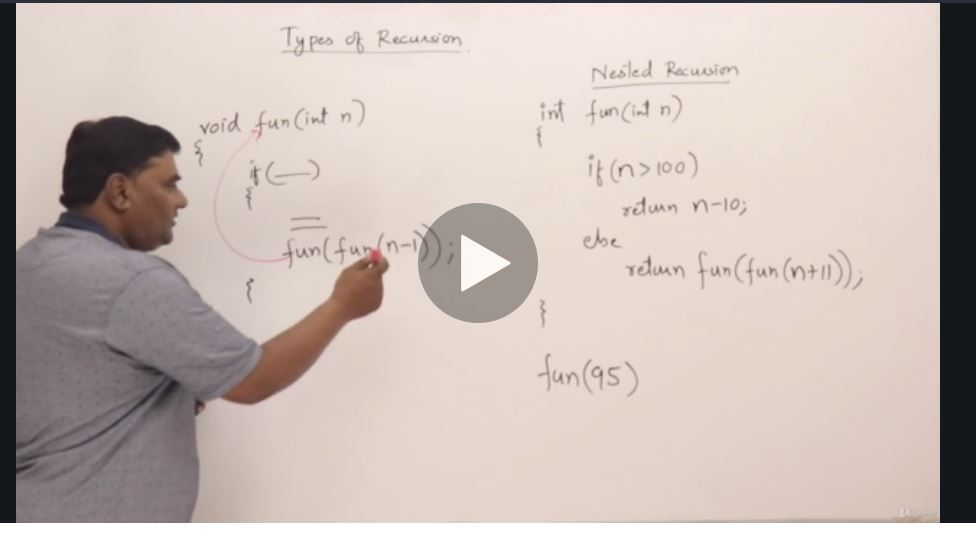 Types of Recursion.
void fun(int n)
{
if(—)
{
fun(fun(n-1));
{
Nested Recursion
int fun(int n)
{
if(n>100)
return n-10;
else
return fun(fun(n+11));
}
fun(95)